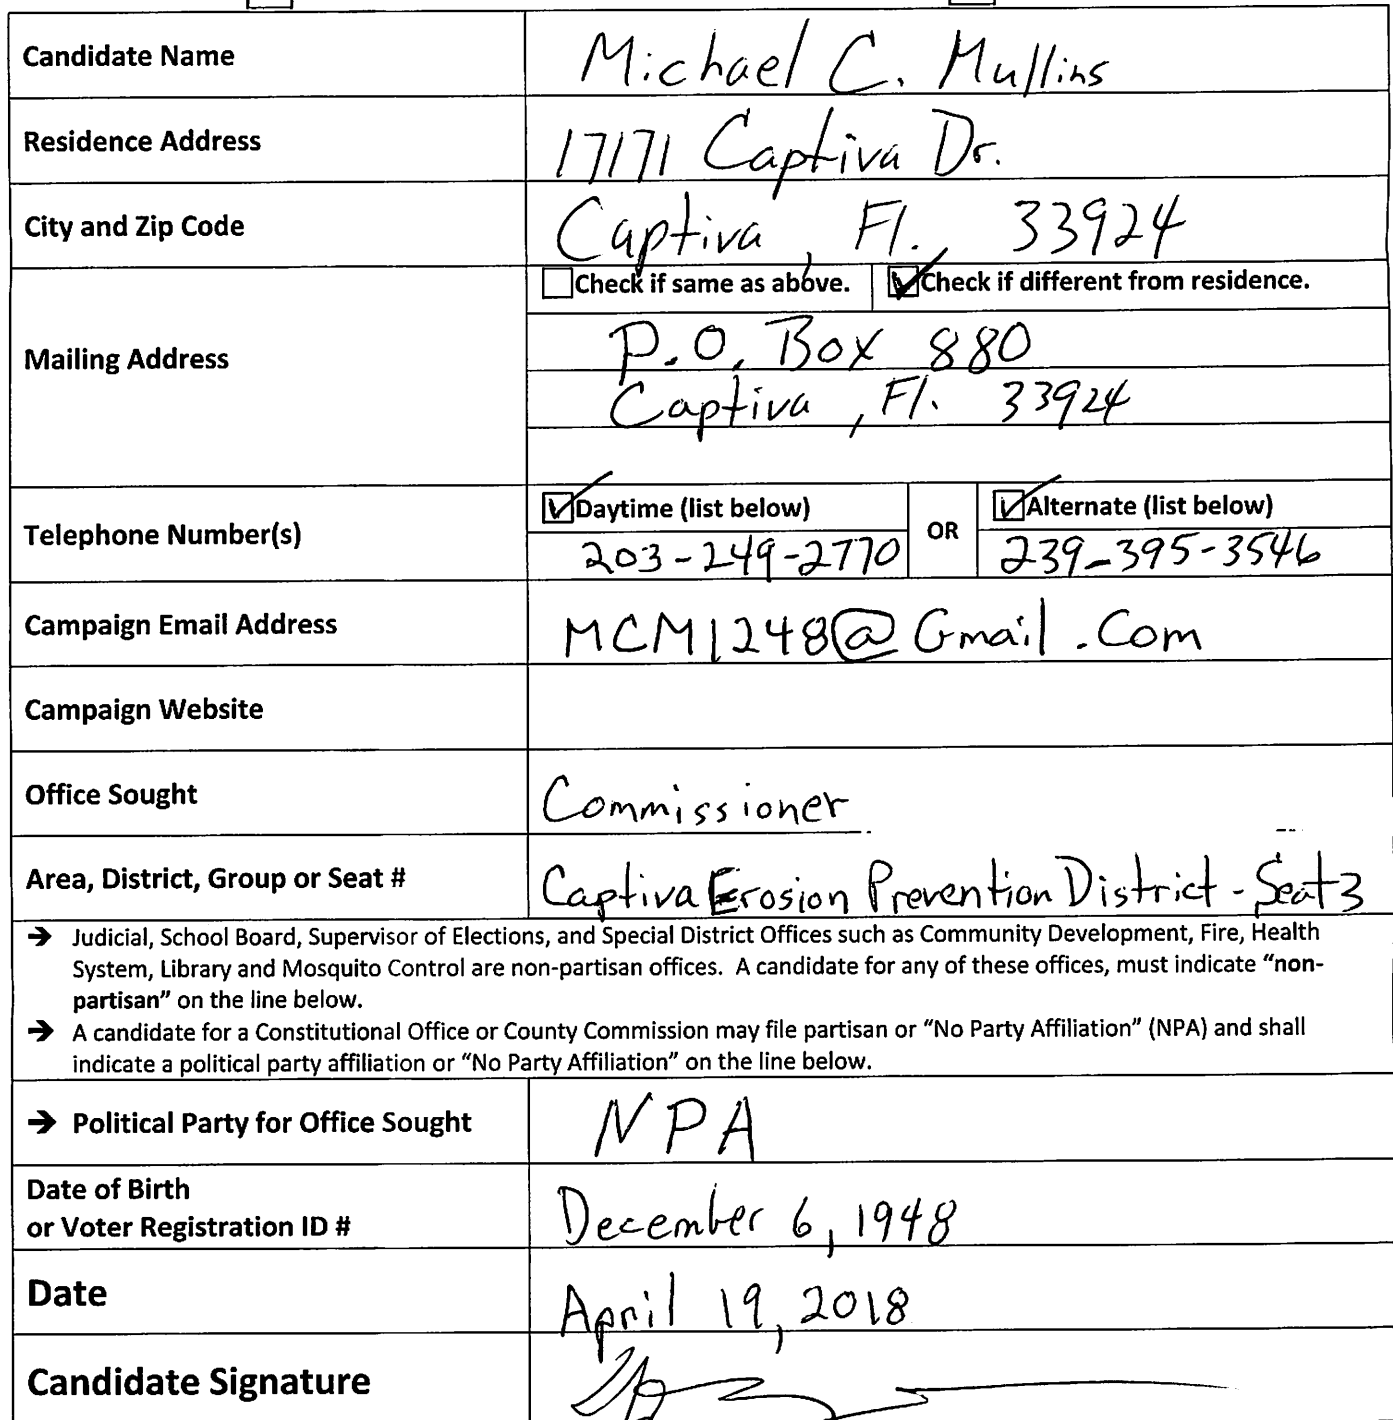 Candidate Name
Michael C. Mullins
Residence Address
17171 Captiva Dr.
City and Zip Code
Captiva, Fl., 33924
Mailing Address
Check if same as above. Check if different from residence.
P.O. Box 880
Captiva, Fl. 33924
Telephone Number(s)
Daytime (list below) OR Alternate (list below)
203-249-2770 239-395-3546
Campaign Email Address
MCM1248@Gmail.Com
Campaign Website
Office Sought
Commissioner
Area, District, Group or Seat #
Captiva Erosion Prevention District - Seat 3
→ Judicial, School Board, Supervisor of Elections, and Special District Offices such as Community Development, Fire, Health
System, Library and Mosquito Control are non-partisan offices. A candidate for any of these offices, must indicate “non-
partisan” on the line below.
→ A candidate for a Constitutional Office or County Commission may file partisan or “No Party Affiliation” (NPA) and shall
indicate a political party affiliation or “No Party Affiliation” on the line below.
→ Political Party for Office Sought
NPA
Date of Birth
or Voter Registration ID #
December 6, 1948
Date
April 19, 2018
Candidate Signature